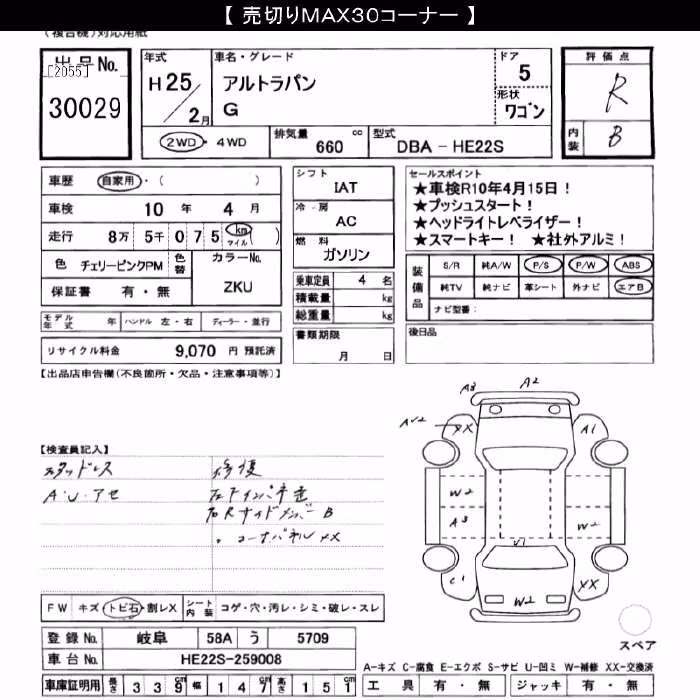 【 売切りMAX30コーナー 】
(複合機)対応用紙
出品No.
[2055]
30029
年式
H25/2月
車名・グレード
アルトラパン
G
ドア
5
形状
ワゴン
評価点
R
内装
B
2WD・4WD
排気量 660 cc
型式 DBA - HE22S
車歴 自家用・( )
車検 10 年 4 月
走行 8万 5千 0 7 5 km マイル ( )
色 チェリーピンクPM
色替
カラーNo.
ZKU
保証書 有・無
モデル年式 年 ハンドル 左・右 ディーラー・並行
リサイクル料金 9,070 円 預託済
シフト
IAT
冷・房
AC
燃料
ガソリン
乗車定員 4 名
積載量 kg
総重量 kg
書類期限
月 日
セールスポイント
★車検R10年4月15日!
★プッシュスタート!
★ヘッドライトレベライザー!
★スマートキー! ★社外アルミ!
装備品
S/R 純A/W P/S P/W ABS
純TV 純ナビ 革シート 外ナビ エアB
ナビ型番:
後日品
【出品店申告欄(不良箇所・欠品・注意事項等)】
【検査員記入】
スタッドレス
A・U・アセ
修復
右Rサイドメンバー B
コーナーパネル XX
A3 A2
XX A1
W2
A3 W2
V1
C1 XX
W2
FW キズ・トビ石・割レX
シート内装 コゲ・穴・汚レ・シミ・破レ・スレ
登録No. 岐阜 58A う 5709
車台No. HE22S-259008
車庫証明用 長さ 3 3 9cm 幅 1 4 7cm 高さ 1 5 1cm
スペア
A-キズ C-腐食 E-エクボ S-サビ U-凹ミ W-補修 XX-交換済
工具 有・無 ジャッキ 有・無